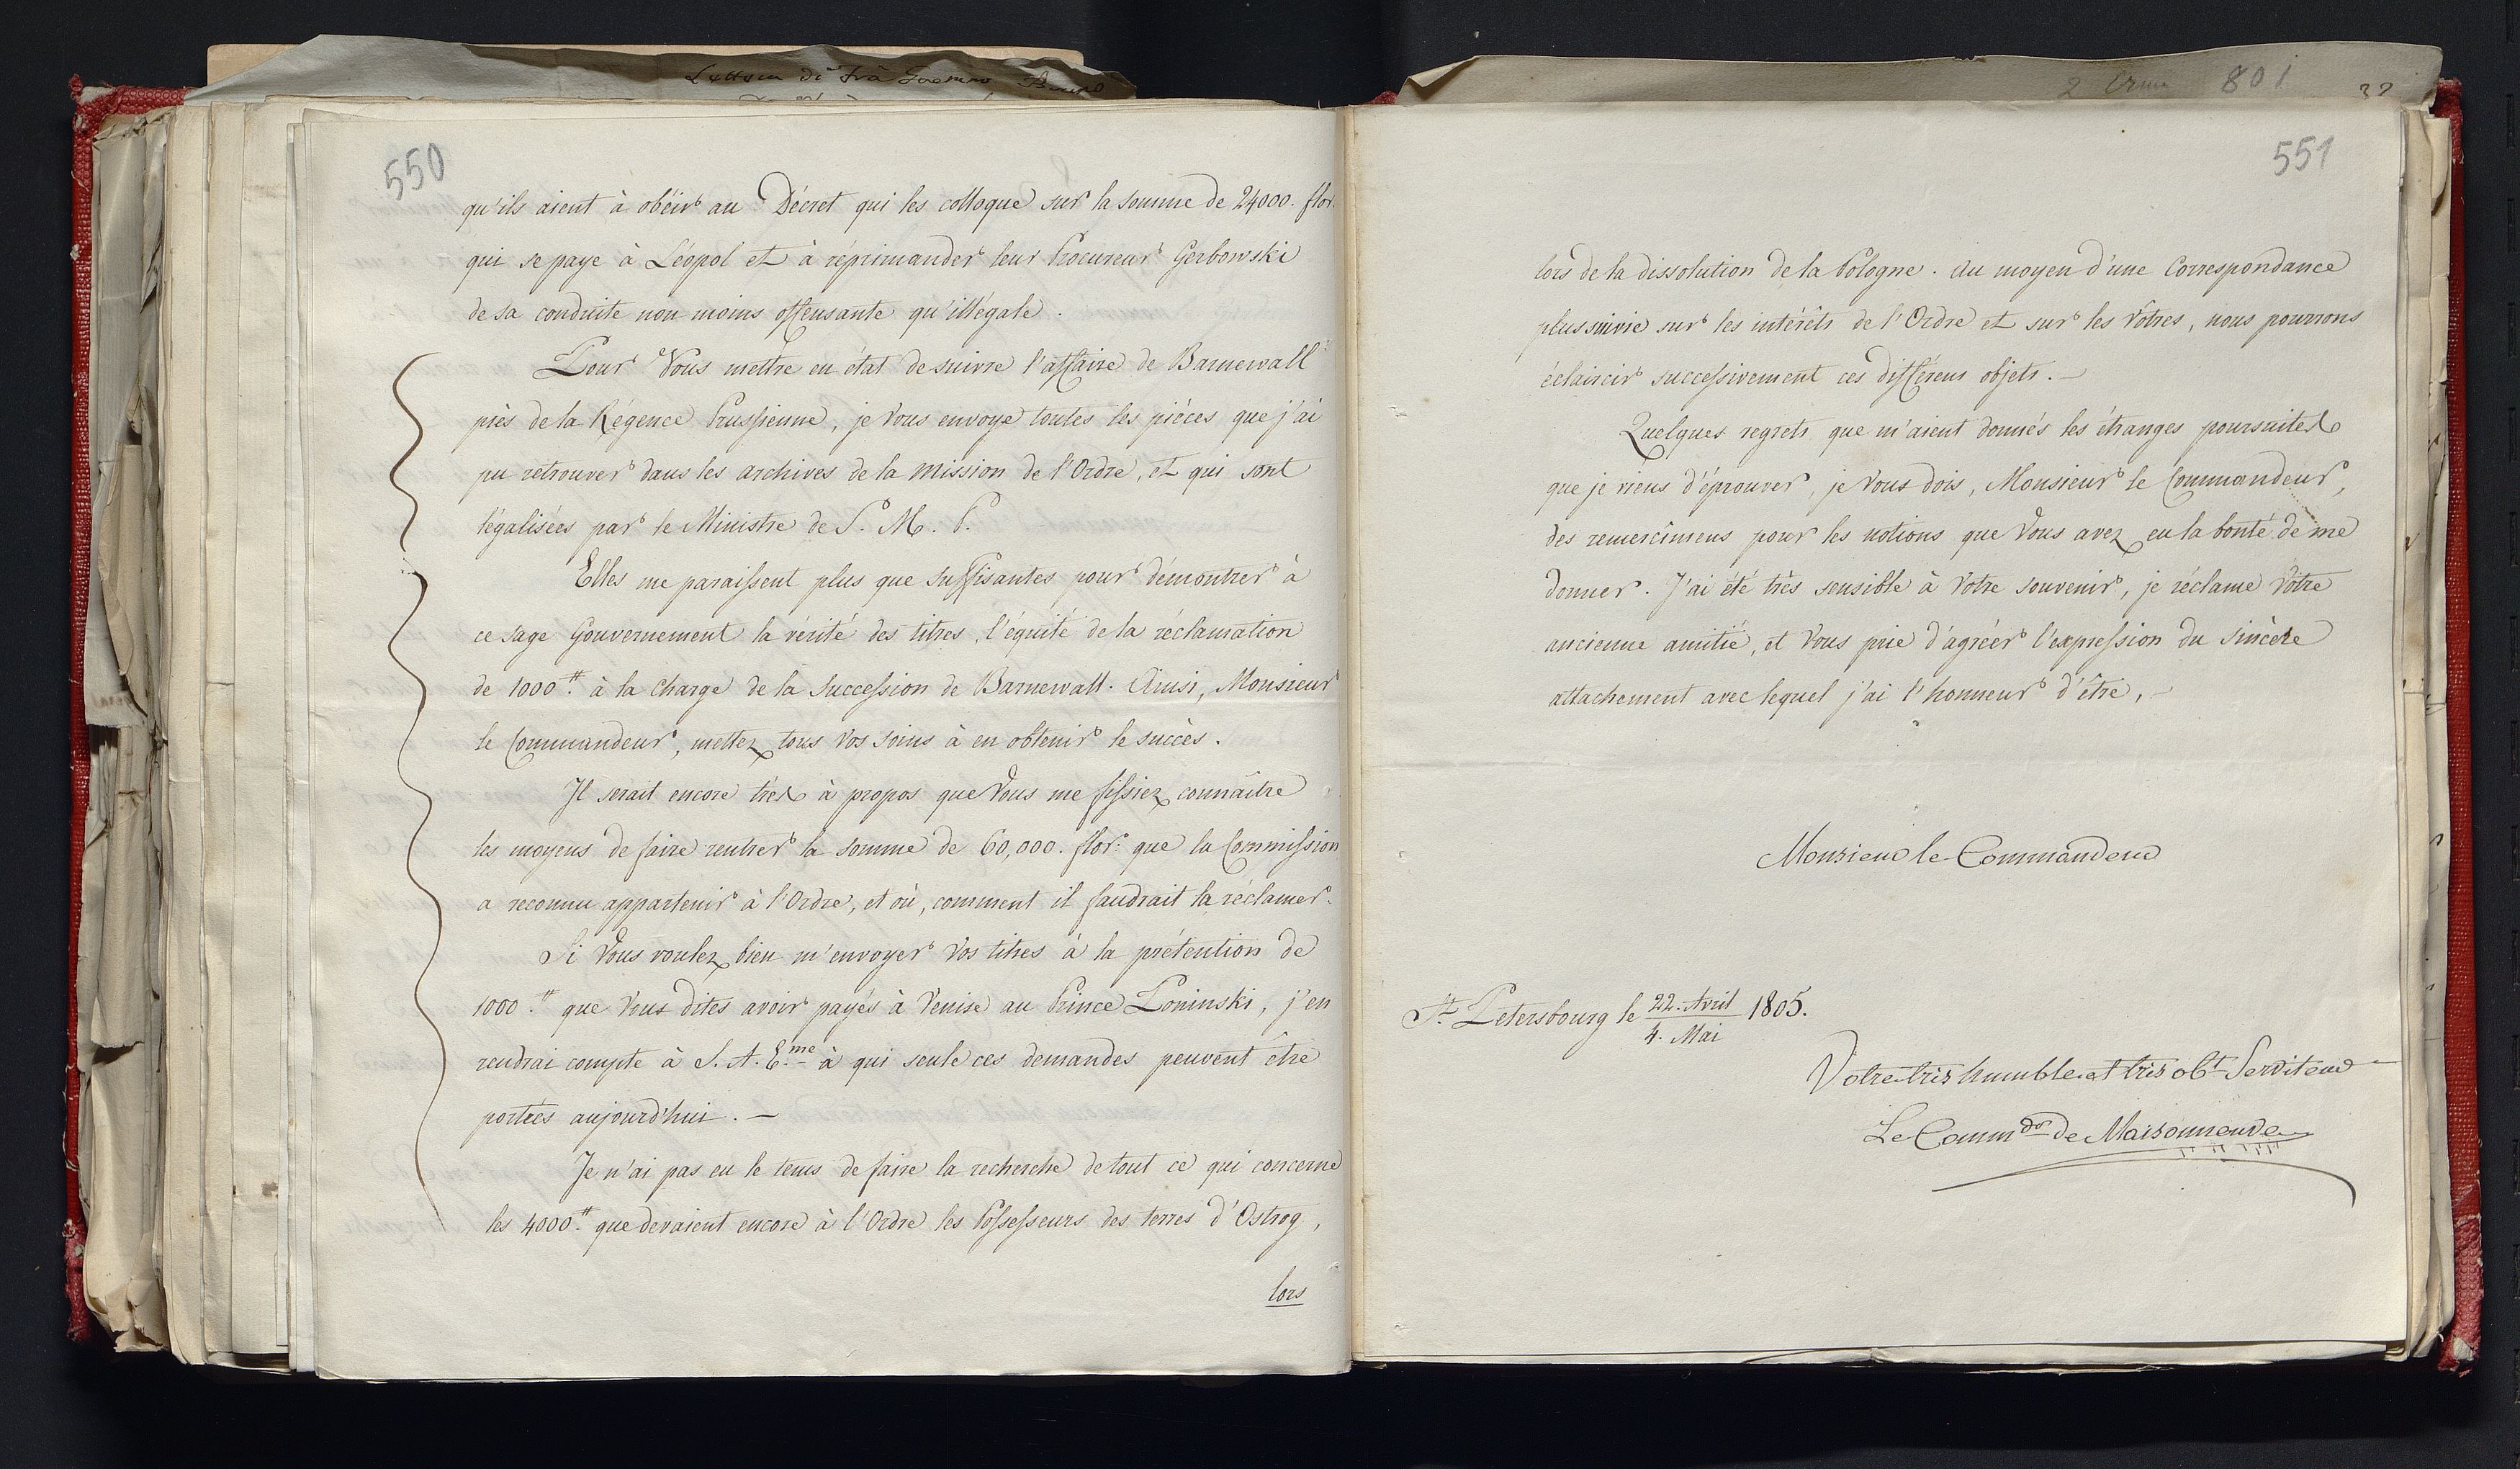 Lettera di Frà
2 801 32
550
qu'ils aient à obéir au Décret qui les colloque sur la somme de 24000. flor.
qui se paye à Léopol et à réprimander leur Procureur Gerbowski
de sa conduite non moins offensante qu'illégale.
Pour Vous mettre en état de suivre l'affaire de Barnewall
près de la Régence Prussienne, je Vous envoye toutes les pièces que j'ai
pu retrouver dans les archives de la mission de l'Ordre, et qui sont
légalisées par le Ministre de S. M. P.
Elles me paraissent plus que suffisantes pour démontrer à
ce sage Gouvernement la vérité des titres, l'équité de la réclamation
de 1000 #. à la charge de la Succession de Barnewall. Ainsi, Monsieur
le Commandeur, mettez tous Vos soins à en obtenir le succès.
Il serait encore très à propos que Vous me fissiez connaître
les moyens de faire rentrer la somme de 60,000. flor: que la Commission
a reconnu appartenir à l'Ordre, et où, comment il faudrait la réclamer.
Si Vous voulez bien m'envoyer Vos titres à la prétention de
1000 #. que Vous dites avoir payés à Venise au Prince Poninski, j'en
rendrai compte à S. A. E.me à qui seule ces demandes peuvent être
portées aujourd'hui. —
Je n'ai pas eu le tems de faire la recherche de tout ce qui concerne
les 4000 #. que devaient encore à l'Ordre les Possesseurs des terres d'Ostrog,
lors
551
lors de la dissolution de la Pologne. Au moyen d'une Correspondance
plus suivie sur les intérêts de l'Ordre et sur les Vôtres, nous pourrons
éclaircir successivement ces différens objets. —
Quelques regrets que m'aient donnés les étranges poursuites
que je viens d'éprouver, je Vous dois, Monsieur le Commandeur,
des remercimens pour les notions que Vous avez eu la bonté de me
donner. J'ai été très sensible à Votre souvenir, je réclame Vôtre
ancienne amitié, et Vous prie d'agréer l'expression du sincère
attachement avec lequel j'ai l'honneur d'être, —
Monsieur le Commandeur
St. Petersbourg le 22. Avril / 4. Mai 1805.
Votre très humble et très obt Serviteur
Le Commdr de Maisonneuve